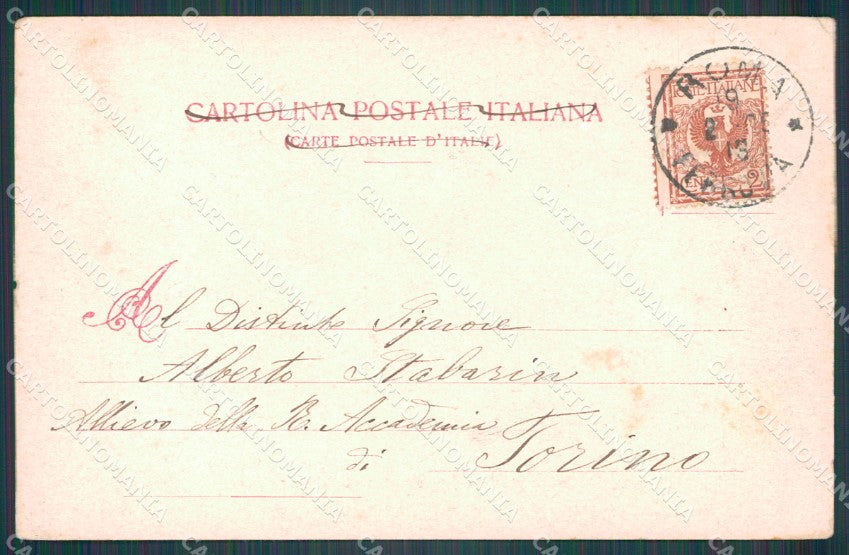 CARTOLINA POSTALE ITALIANA
(CARTE POSTALE D'ITALIE)
ROMA
9
2
13
FERROVIA
POSTE ITALIANE
2
Al Distinto Signore
Alberto Stabarin
Allievo della R. Accademia
di Torino
CARTOLINOMANIA